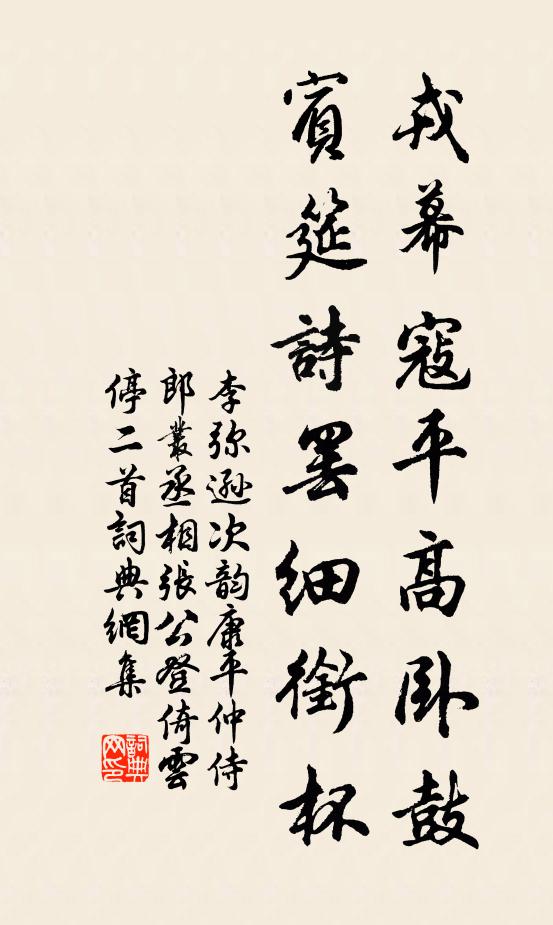 戎幕寇平高卧鼓
賓筵詩罷細銜杯
李弥遜次韵康平仲侍
郎叢丞相張公登倚雲
停二首詞典網集
詞典
网印